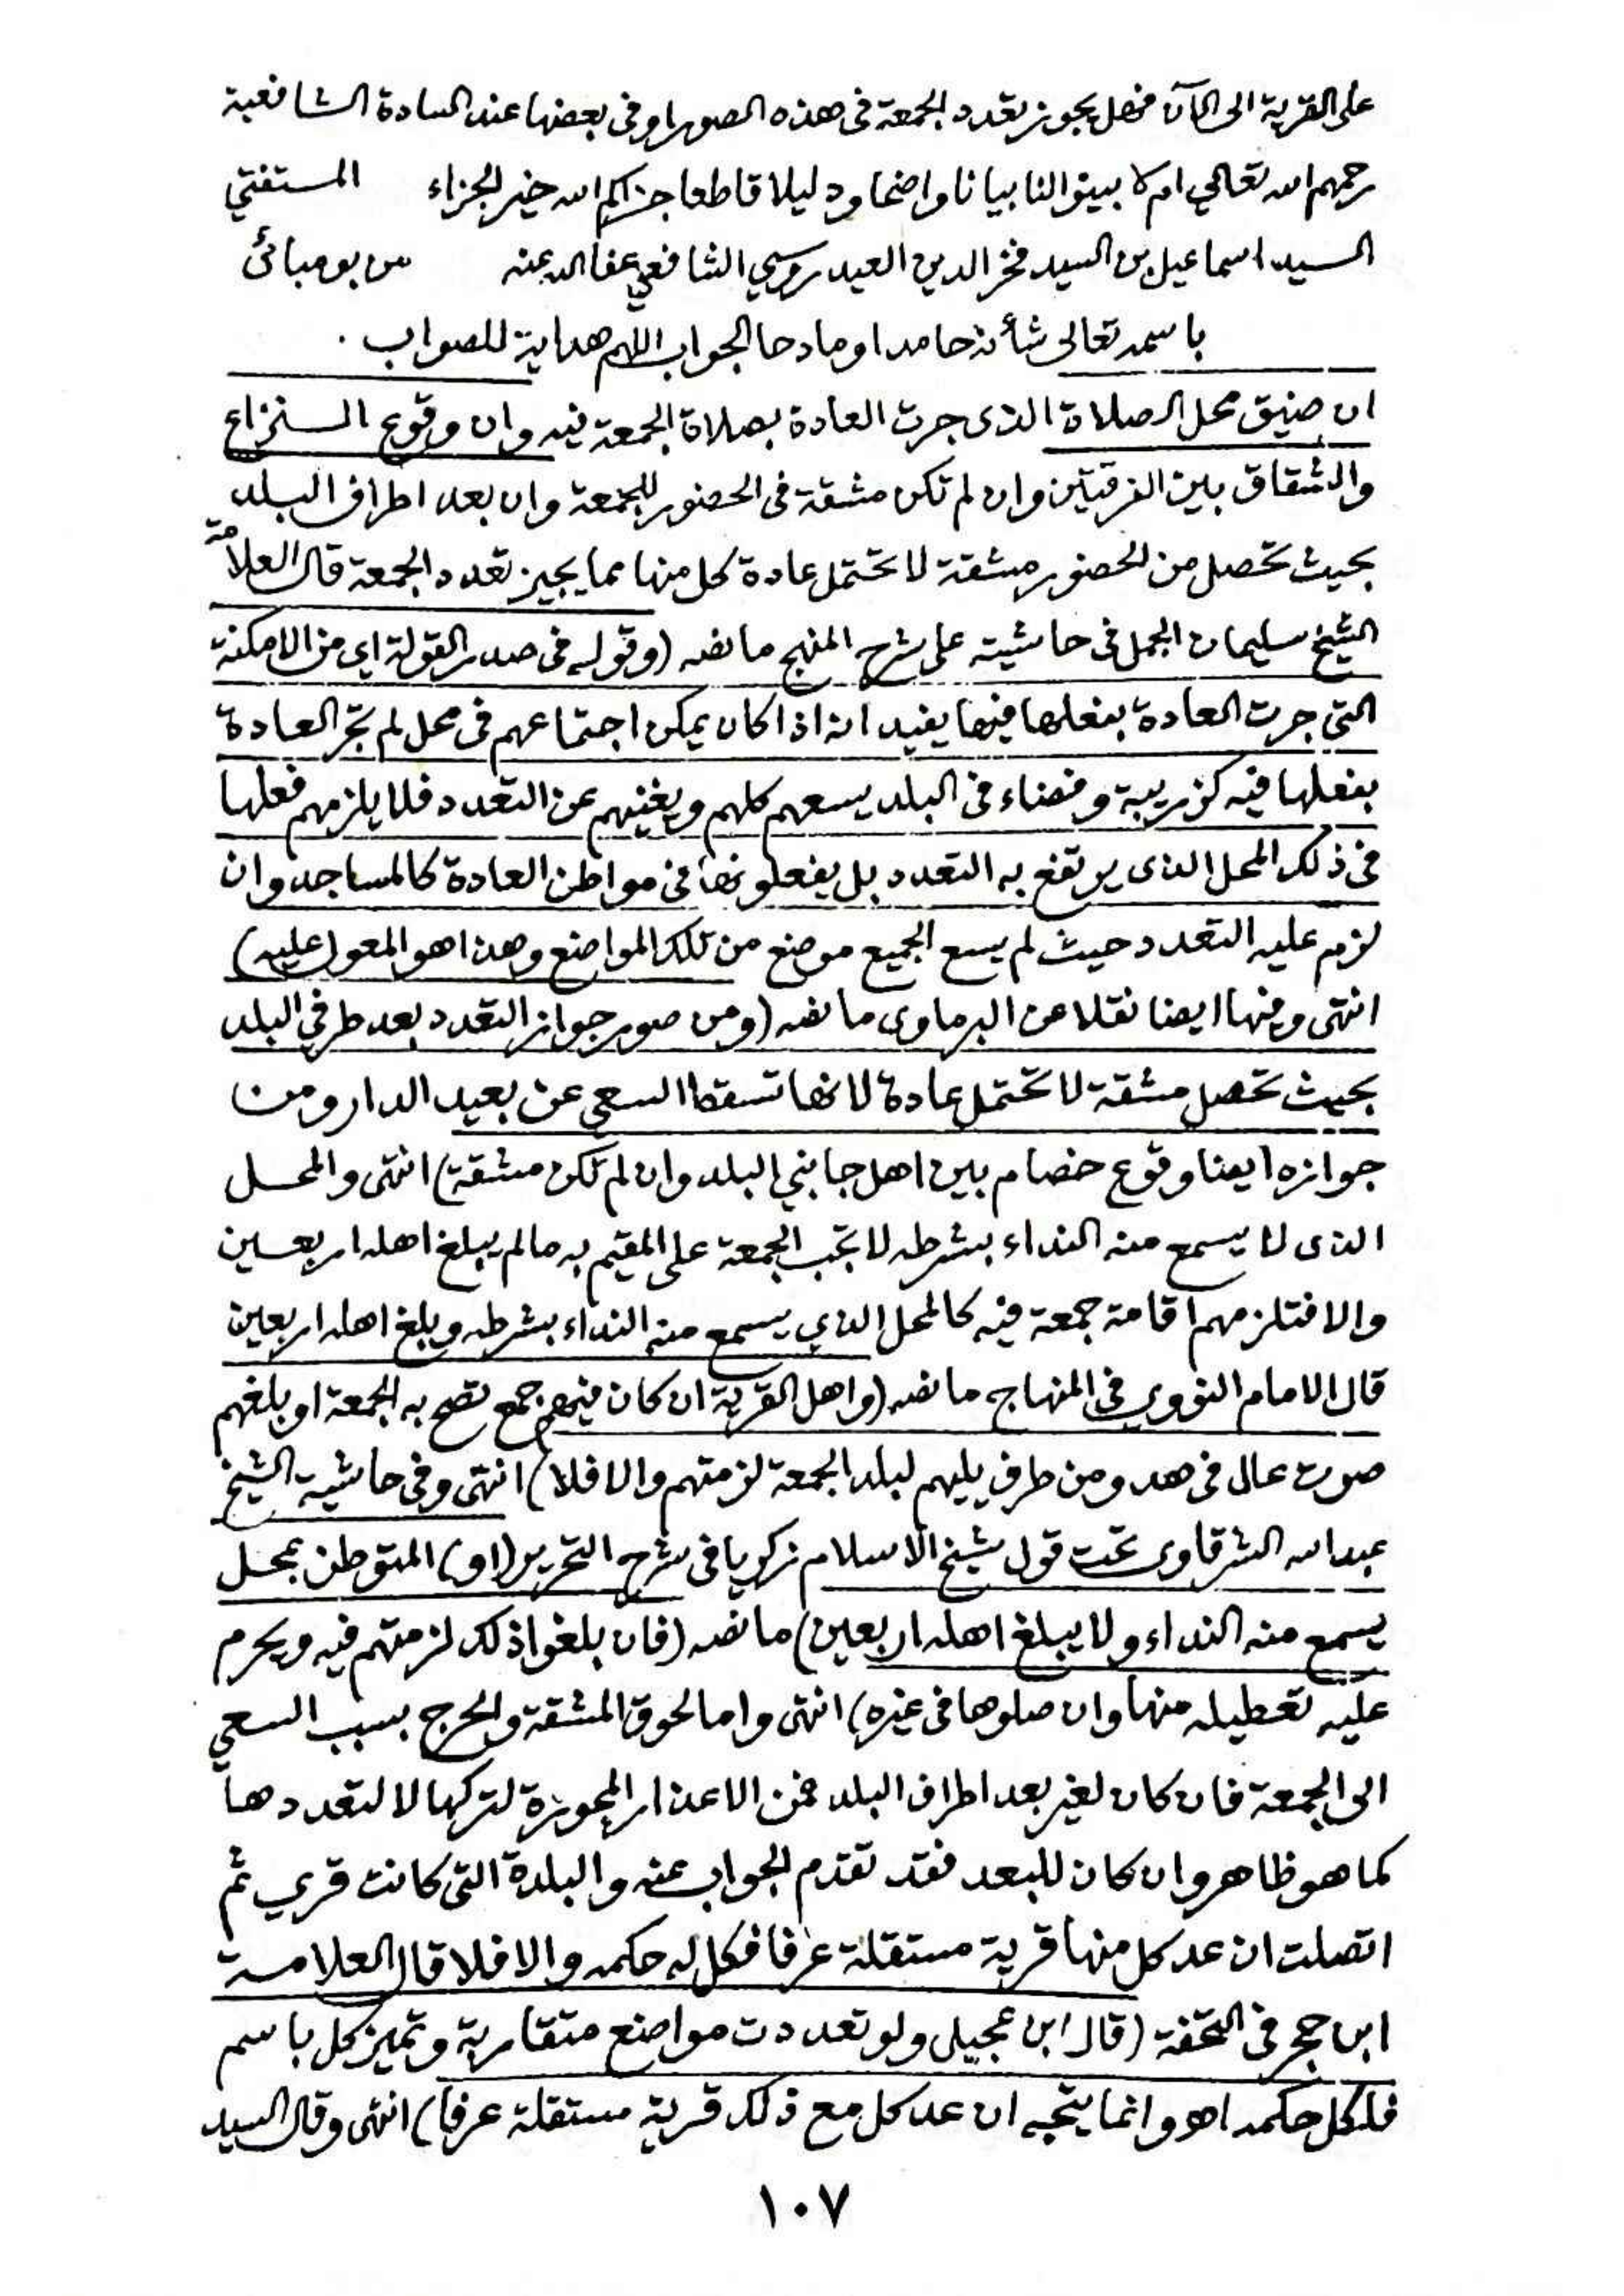 على القرية الى الآن فهل يجوز تعدد الجمعة فى هذه الصور او فى بعضها عند السادة الشافعية
رحمهم الله تعالى ام لا بينوا لنا بيانا واضحا ودليلا قاطعا جزاكم الله خير الجزاء المستفتي
السيد اسماعيل بن السيد فخر الدين العيدروسي الشافعي عفا الله عنه من بومبائى
باسمه تعالى شأنه حامدا ومادحا الجواب اللهم هداية للصواب .
ان ضيق محل الصلاة الذى جرت العادة بصلاة الجمعة فيه وان وقوع النزاع
والشقاق بين الفرقتين وان لم تكن مشقة فى الحضور للجمعة وان بعد اطراف البلد
بحيث تحصل من الحضور مشقة لا تحتمل عادة كل منها مما يجيز تعدد الجمعة قال العلامة
الشيخ سليمان الجمل فى حاشيته على شرح المنهج ما نصه (وقوله فى صدر القولة اى من الامكنة
التى جرت العادة بفعلها فيها يفيد انه اذا كان يمكن اجتماعهم فى محل لم تجر العادة
بفعلها فيه كزريبة وفضاء فى البلد يسعهم كلهم ويغنيهم عن التعدد فلا يلزمهم فعلها
فى ذلك المحل الذى يرتفع به التعدد بل يفعلونها فى مواطن العادة كالمساجد وان
لزم عليه التعدد حيث لم يسع الجميع موضع من تلك المواضع وهذا هو المعول عليه)
انتهى وفيها ايضا نقلا عن البرماوى ما نصه (ومن صور جواز التعدد بعد طرفي البلد
بحيث تحصل مشقة لا تحتمل عادة لانها تسقط السعى عن بعيد الدار ومن
جوازه ايضا وقوع خصام بين اهل جانبي البلد وان لم تكن مشقة) انتهى والمحل
الذى لا يسمع منه النداء بشرطه لا تجب الجمعة على المقيم به ما لم يبلغ اهله اربعين
والا فتلزمهم اقامة جمعة فيه كالمحل الذي يسمع منه النداء بشرطه ويبلغ اهله اربعين
قال الامام النووي فى المنهاج ما نصه (واهل القرية ان كان فيهم جمع تصح به الجمعة او بلغهم
صوت عال فى هدو من طرف يليهم لبلد الجمعة لزمتهم والا فلا) انتهى وفى حاشية الشيخ
عبد الله الشرقاوى تحت قول شيخ الاسلام زكريا فى شرح التحرير (او) المتوطن بمحل
يسمع منه النداء ولا يبلغ اهله اربعين) ما نصه (فان بلغوا ذلك لزمتهم فيه ويحرم
عليه تعطيله منها وان صلوها فى غيره) انتهى واما لحوق المشقة والحرج بسبب السعي
الى الجمعة فان كان لغير بعد اطراف البلد فمن الاعذار المجوزة لتركها لا لتعددها
كما هو ظاهر وان كان للبعد فقد تقدم الجواب عنه والبلدة التى كانت قرى ثم
اتصلت ان عد كل منها قرية مستقلة عرفا فكل له حكمه والا فلا قال العلامة
ابن حجر فى التحفة (قال ابن عجيل ولو تعددت مواضع متقاربة وتميز كل باسم
فلكل حكمه اهو وانما يتجه ان عد كل مع ذلك قرية مستقلة عرفا) انتهى وقال السيد
١٠٧